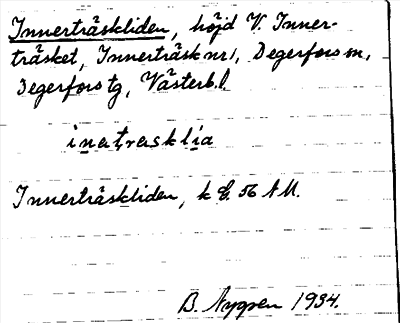 Innerträskliden, höjd V. Inner-
träsket, Innerträsk nr 1, Degerfors sn,
Degerfors tg, Västerb. l.
inatrasklia
Innerträskliden, k E. 56 AU.
B. Nygren 1934.